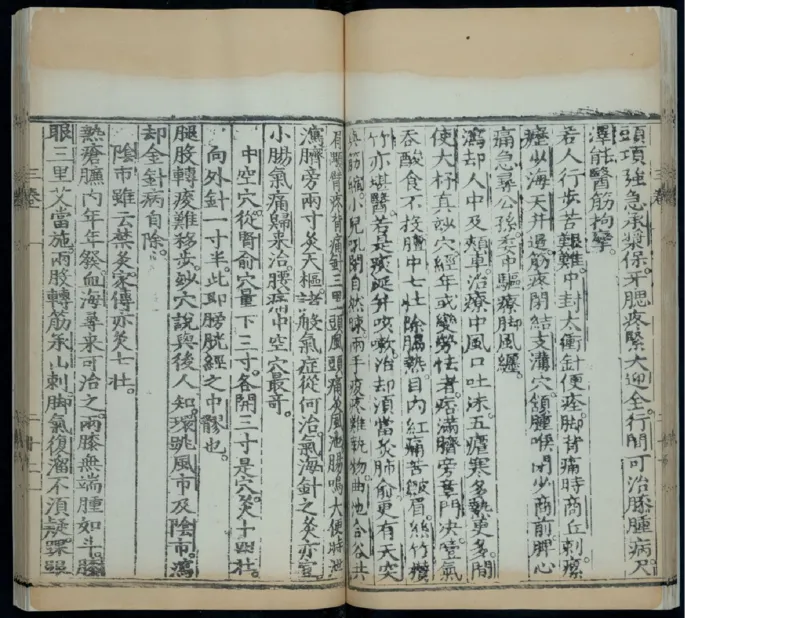 頭項強急承漿保。牙腮疼緊大迎全。行間可治膝腫病。尺
澤能醫筋拘攣。
若人行步苦艱難。中封太衝針便痊。脚背痛時商丘刺。瘰
癧少海天井邊。筋疼閉結支溝穴。頷腫喉閉少商前。脾心
痛急尋公孫。委中驅療脚風纏。
瀉却人中及頰車。治療中風口吐沫。五瘧寒多熱更多。間
使大杼真妙穴。經年或變勞怯者。痞滿臍旁章門决。噎氣
吞酸食不投。膻中七壯除膈熱。目內紅痛苦皺眉。絲竹攢
竹亦堪醫。若是痰涎并咳嗽。治却須當灸肺俞。更有天突
與筋縮。小兒吼閉自然疎。兩手痠疼難執物。曲池合谷共
肩髃。臂疼背痛針三里。頭風頭痛灸風池。腸鳴大便時泄
瀉。臍旁兩寸灸天樞。諸般氣症從何治。氣海針之灸亦宜。
小腸氣痛歸來治。腰痛中空穴最奇。
中空穴從腎俞穴量下三寸。各開三寸是穴。灸十四壯。
向外針一寸半。此即膀胱經之中髎也。
腿股轉痠難移步。妙穴說與後人知。環跳風市及陰市。瀉
却金針病自除。
陰市雖云禁灸。家傳亦灸七壯。
熱瘡臁內年年發。血海尋來可治之。兩膝無端腫如斗。膝
眼三里艾當施。兩股轉筋承山刺。脚氣復溜不須疑。踝跟